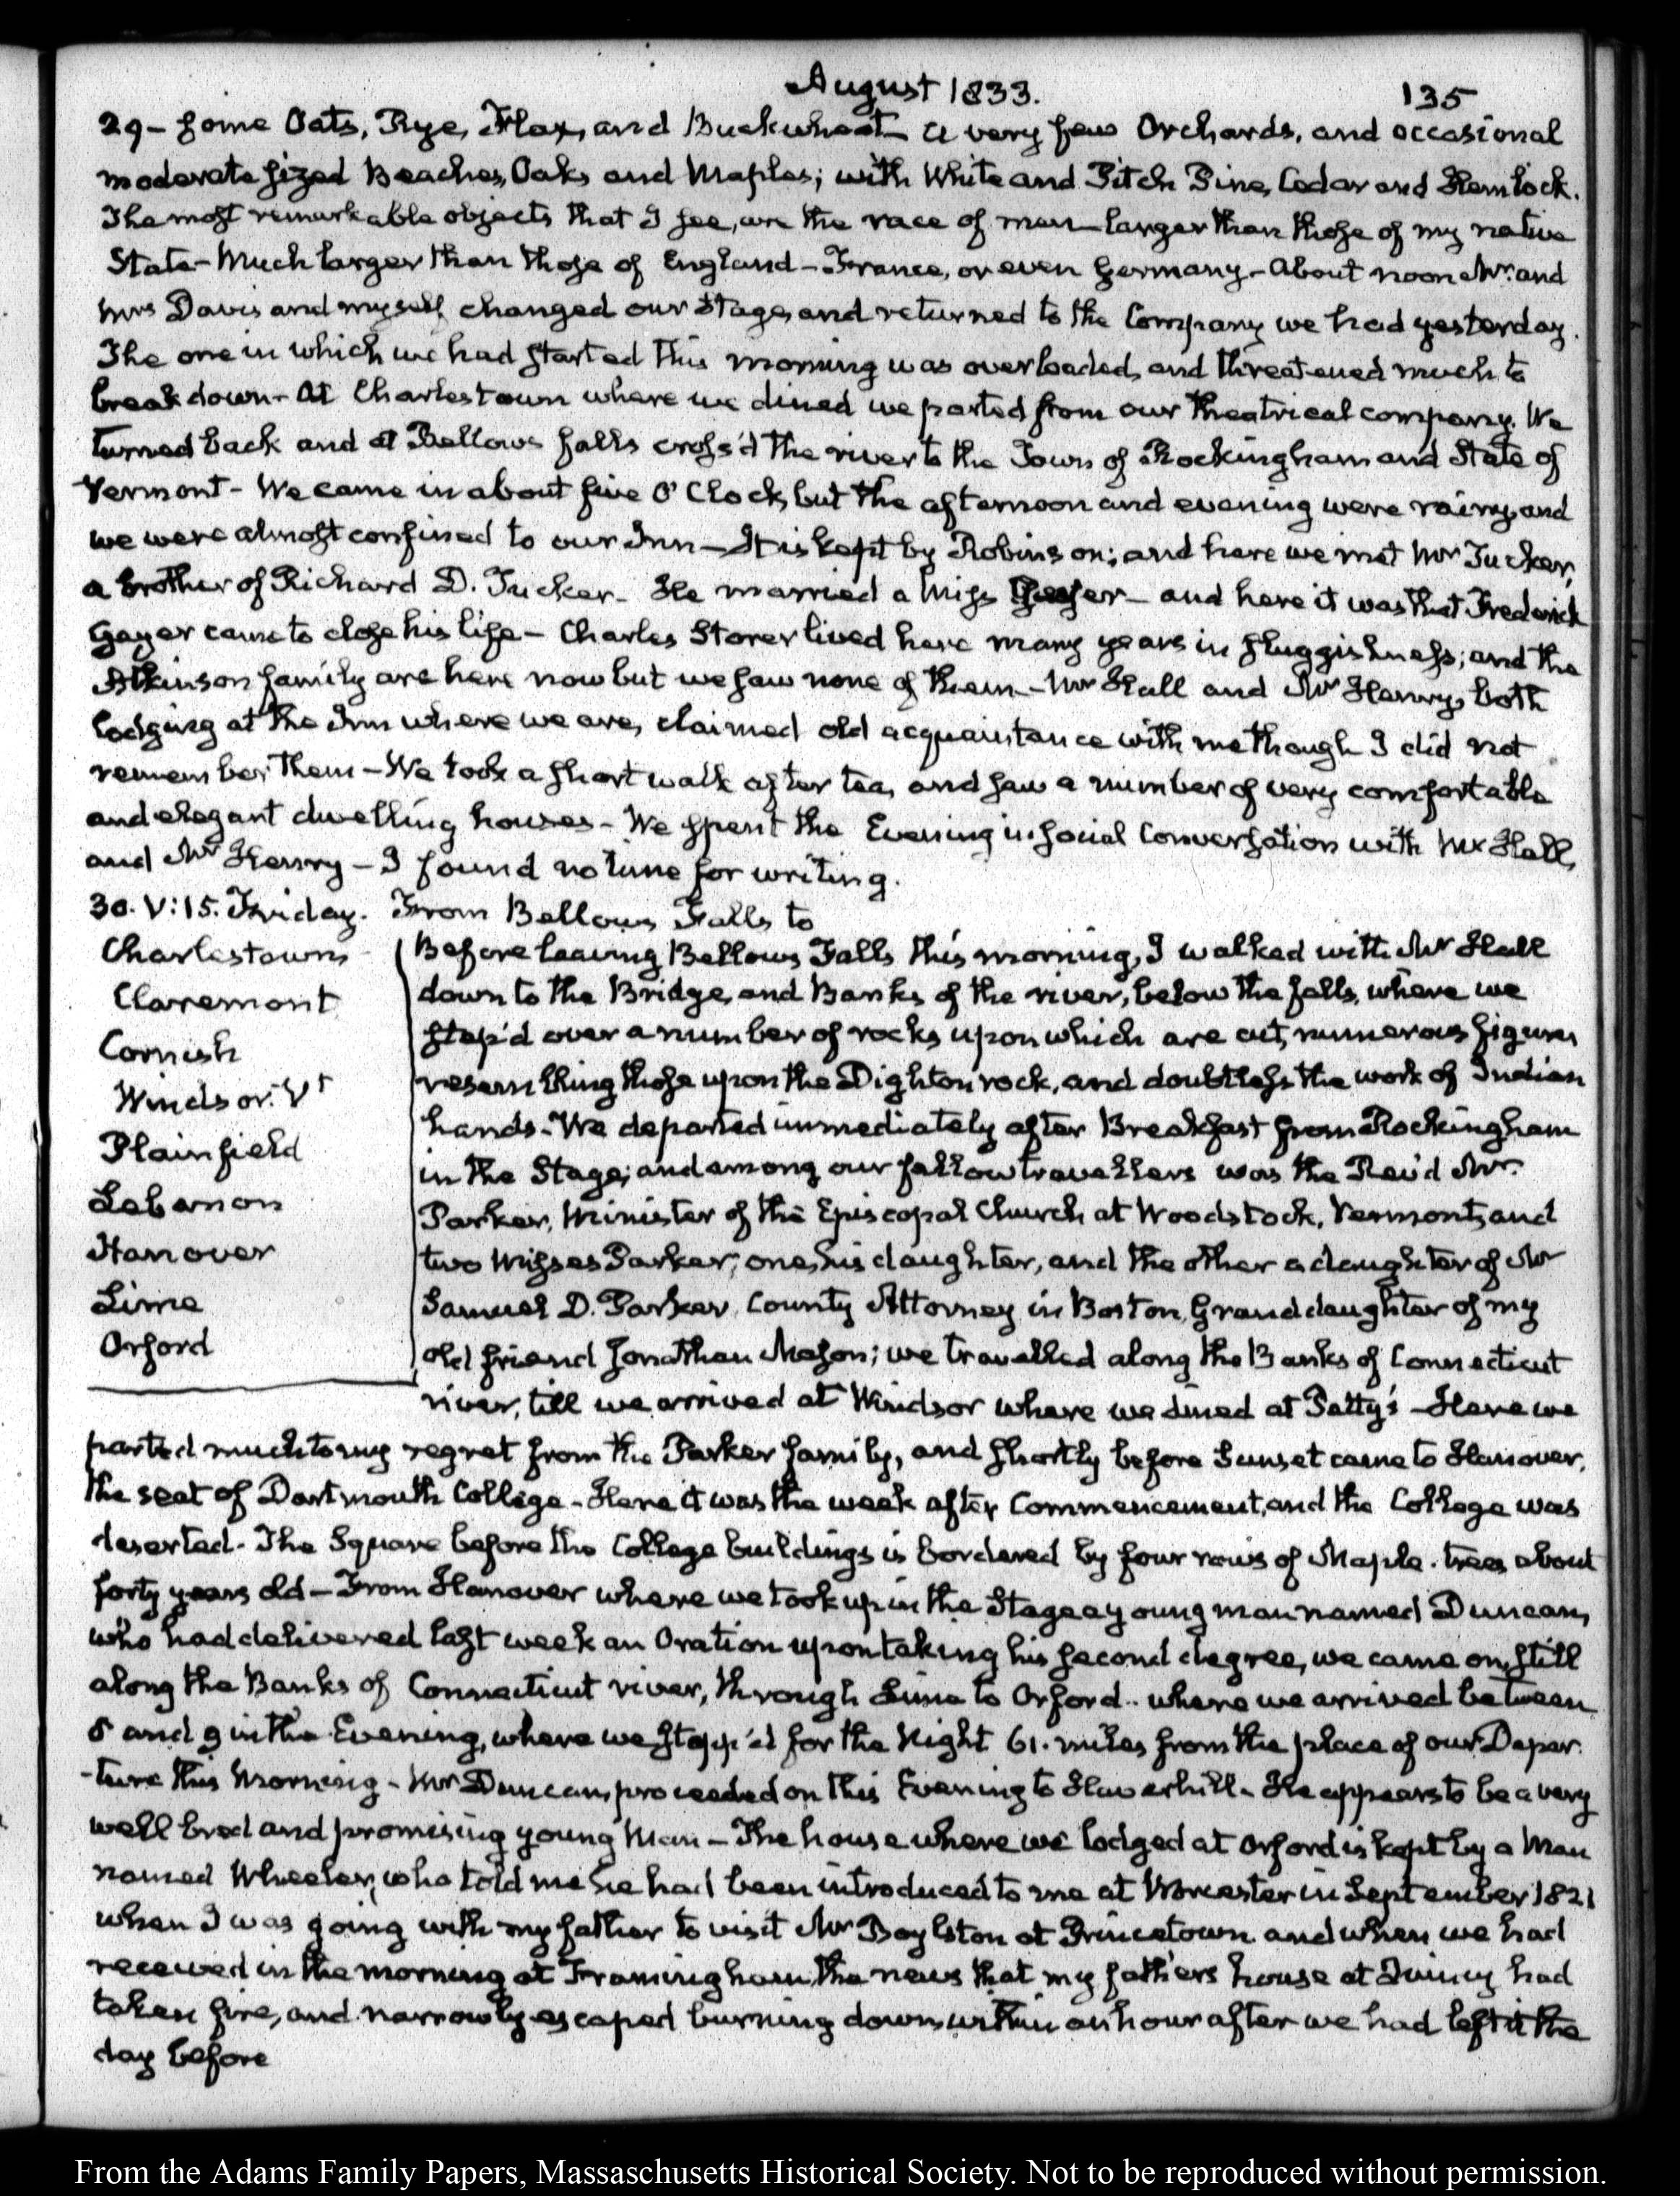 August 1833.
135
29 – some Oats, Rye, Flax, and Buckwheat a very few Orchards, and occasional
moderate sized Beaches, Oaks and Maples; with White and Pitch Pine, Cedar and Hemlock.
The most remarkable objects that I see, are the race of men – larger than those of my native
State – Much larger than those of England – France, or even Germany – About noon Mr. and
Mrs Davis and myself changed our Stage, and returned to the Company we had yesterday.
The one in which we had started this morning was overloaded, and threatened much to
break down – At Charlestown where we dined we parted from our theatrical company. We
turned back and at Bellows falls cross'd the river to the Town of Rockingham and State of
Vermont – We came in about five O'Clock, but the afternoon and evening were rainy, and
we were almost confined to our Inn – It is kept by Robinson; and here we met Mr Tucker,
a brother of Richard D. Tucker – He married a Miss – and here it was that Frederick
Geyer came to close his life – Charles Storer lived here many years in sluggishness; and the
Atkinson family are here now but we saw none of them – Mr Hall and Mr Henry, both
lodging at the Inn where we are, claimed old acquaintance with me though I did not
remember them – We took a short walk after tea, and saw a number of very comfortable
and elegant dwelling houses – We spent the Evening in social Conversation with Mr Hall,
and Mr Henry – I found no time for writing.
30. V:15. Friday. From Bellows Falls to
Charlestown
Claremont
Cornish
Windsor. Vt
Plainfield
Lebanon
Hanover
Lime
Orford
Before leaving Bellows Falls this morning, I walked with Mr Hall
down to the Bridge, and Banks of the river, below the falls, where we
step'd over a number of rocks upon which are cut, numerous figures
resembling those upon the Dighton rock, and doubtless the work of Indian
hands – We departed immediately after Breakfast from Rockingham
in the Stage; and among our fellow travellers was the Rev'd Mr
Parker, Minister of the Episcopal Church at Woodstock, Vermont, and
two Misses Parker; one, his daughter, and the other a daughter of Mr
Samuel D. Parker, County Attorney in Boston, Grand daughter of my
old friend Jonathan Mason; we travelled along the Banks of Connecticut
river, till we arrived at Windsor where we dined at Patty's – Here we
parted much to my regret from the Parker family, and shortly before Sunset came to Hanover,
the seat of Dartmouth College – Here it was the week after Commencement, and the College was
deserted – The Square before the College buildings is bordered by four rows of Maple trees about
forty years old – From Hanover where we took up in the Stage a young man named Duncan,
who had delivered last week an Oration upon taking his second degree, we came on, still
along the Banks of Connecticut river, through Lime to Orford – where we arrived between
8 and 9 in the Evening, where we stopp'd for the Night 61. miles from the place of our Depar-
-ture this Morning – Mr Duncan proceeded on this Evening to Haverhill – He appears to be a very
well bred and promising young Man – The house where we lodged at Orford is kept by a Man
named Wheeler, who told me he had been introduced to me at Worcester in September 1821
when I was going with my father to visit Mr Boylston at Princetown and when we had
received in the morning at Framingham, the news that my father's house at Quincy had
taken fire, and narrowly escaped burning down, within an hour after we had left it the
day before
From the Adams Family Papers, Massachusetts Historical Society. Not to be reproduced without permission.